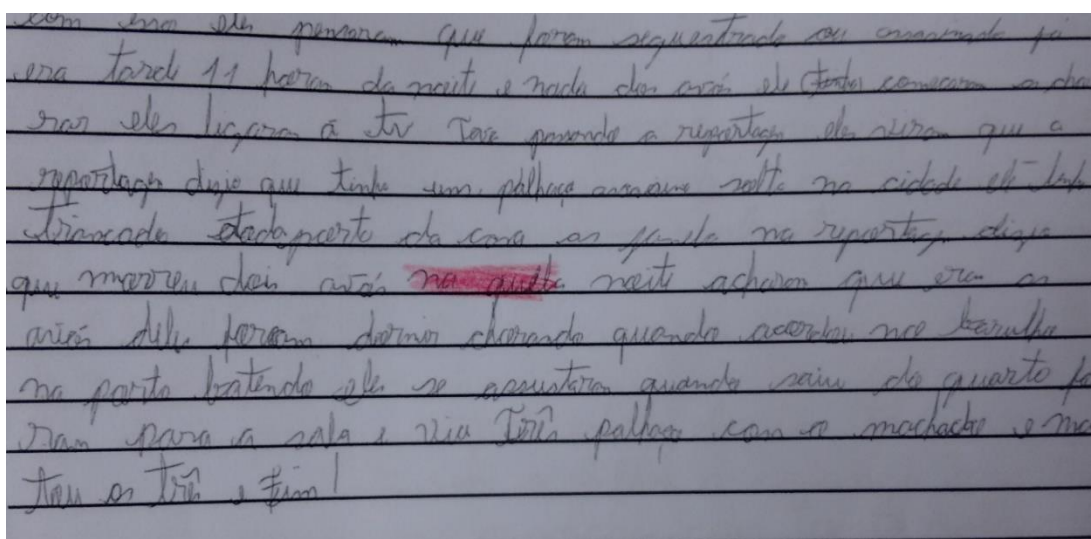 com isso eles pensaram que foram sequentrado ou assasinado já
era tarde 11 horas da noite e nada dos avós ele todos começaram a cho
rar eles ligaram a tv Tava passando a reportage eles viram que a
reportage dizia que tinha um palhaço assasino solto na cidade ele tinha
trancado toda porta da casa as janela na reportage dizia
que morreu dois avós na quela noite acharam que era os
avós dele foram dormir chorando quando acordou nos barulho
na porta batendo eles se assustaram quando saiu do quarto fo
ram para a sala e viu Três palhaço com o machado e ma
tou os Três e fim!